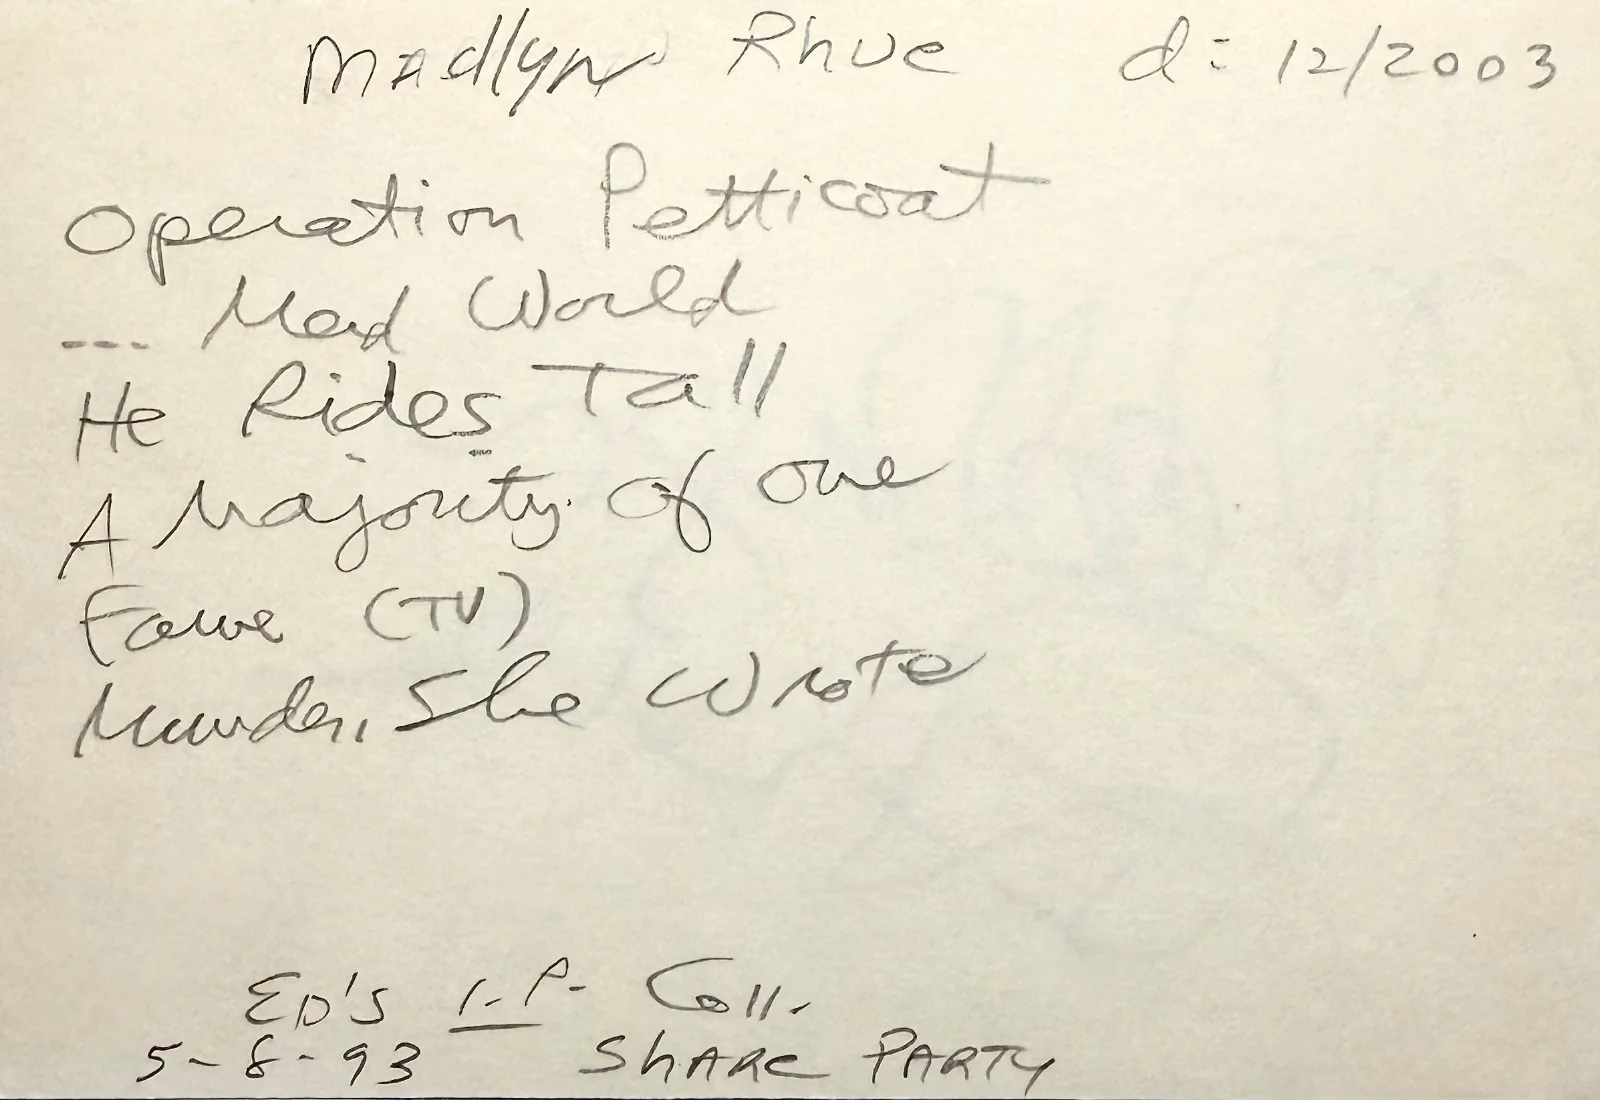 Madlyn Rhue d: 12/2003
Operation Petticoat
--- Mad World
He Rides Tall
A Majority of One
Fame (TV)
Murder, She Wrote
ED'S I.P. Coll.
5-8-93 SHARE PARTY